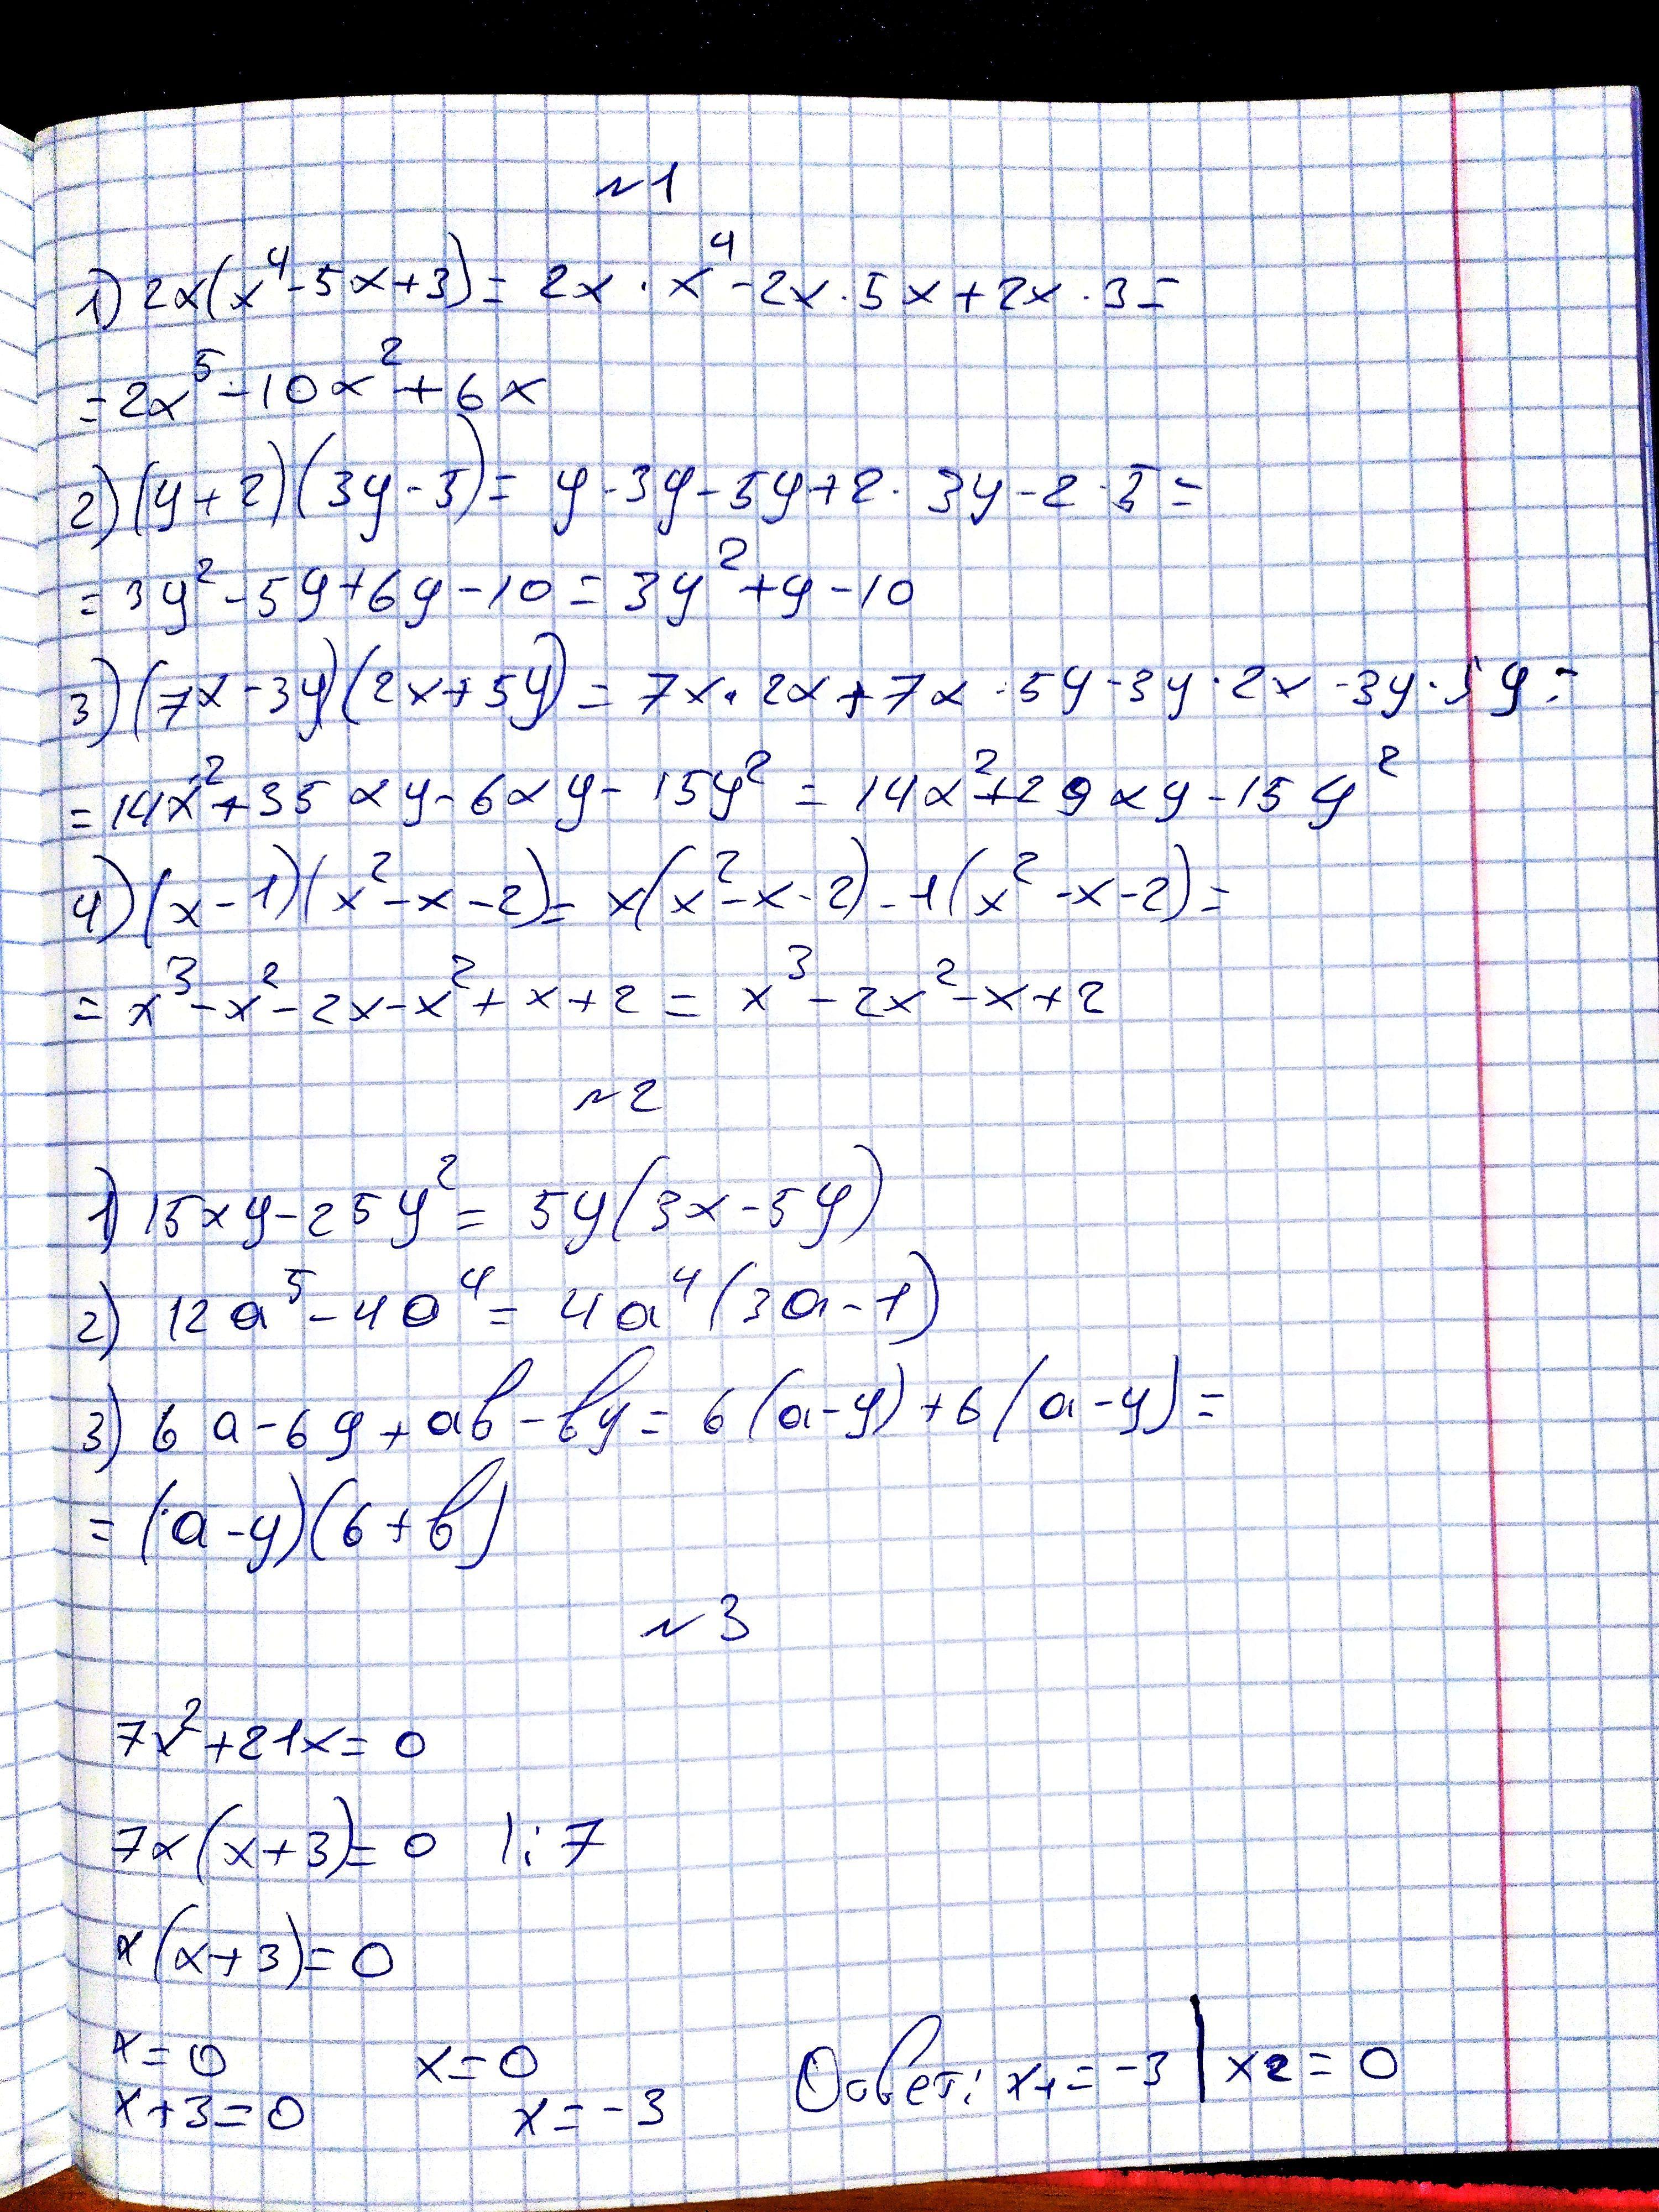 №1
1) 2x(x⁴-5x+3)= 2x·x⁴-2x·5x+2x·3=
=2x⁵-10x²+6x
2) (y+2)(3y-5)= y·3y-5y+2·3y-2·5=
=3y²-5y+6y-10=3y²+y-10
3) (7x-3y)(2x+5y)=7x·2x+7x·5y-3y·2x-3y·5y=
=14x²+35xy-6xy-15y²=14x²+29xy-15y²
4) (x-1)(x²-x-2)= x(x²-x-2)-1(x²-x-2)=
=x³-x²-2x-x²+x+2=x³-2x²-x+2
№2
1) 15xy-25y²=5y(3x-5y)
2) 12a⁵-4a⁴=4a⁴(3a-1)
3) 6a-6y+ab-by=6(a-y)+6(a-y)=
=(a-y)(6+b)
№3
7x²+21x=0
7x(x+3)=0 |:7
x(x+3)=0
x=0 x=0
x+3=0 x=-3 Ответ: x₁=-3 | x₂=0